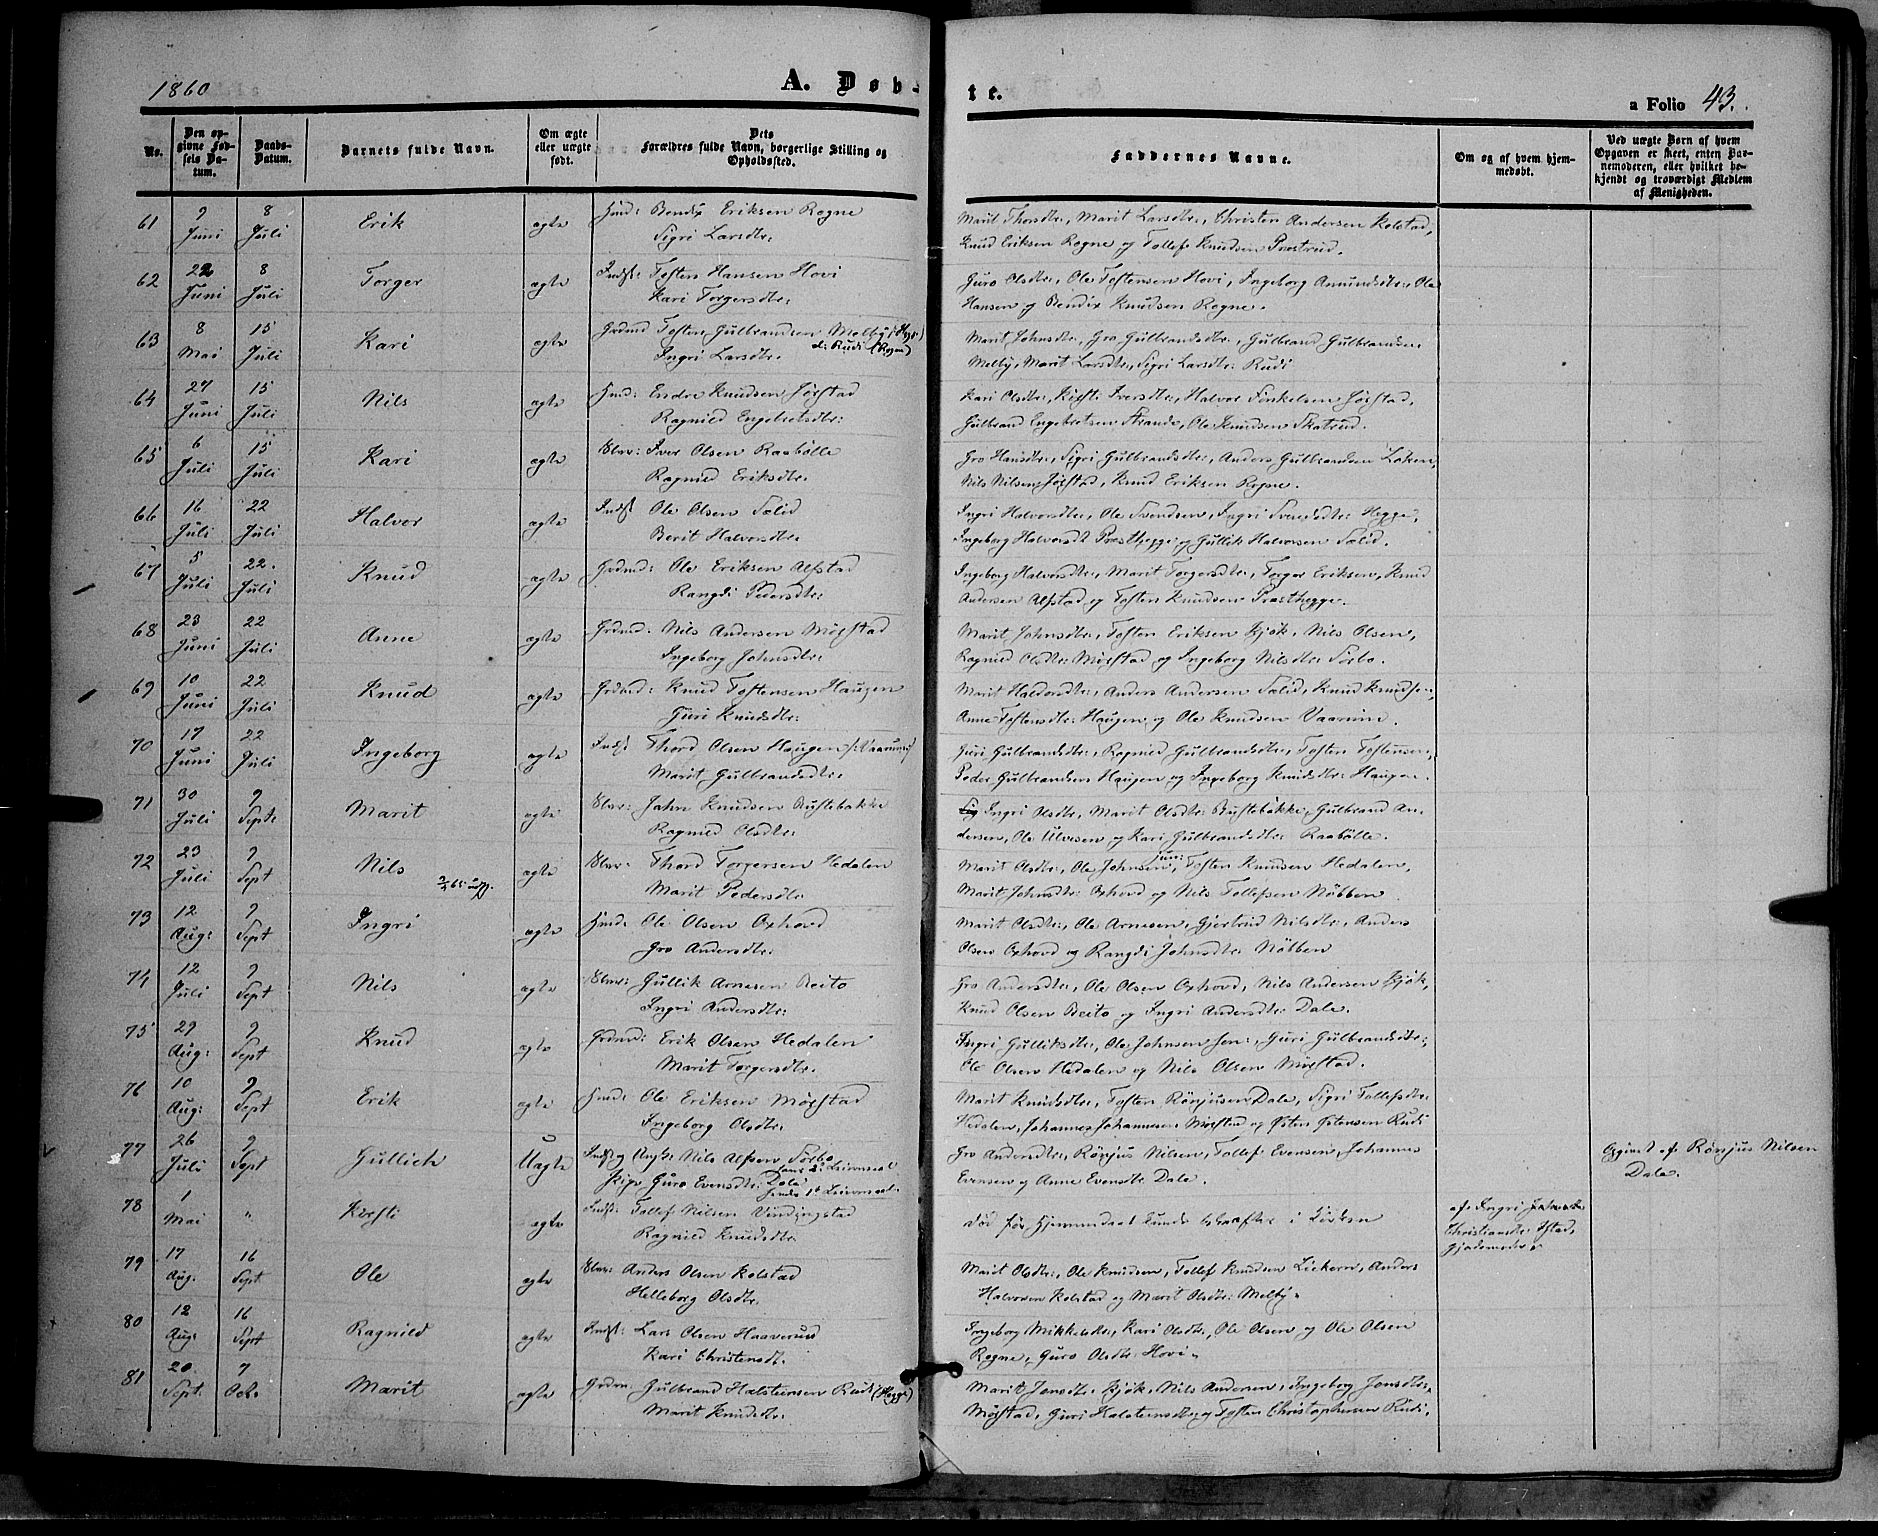 1860
A. Døb-
te.
a Folio 43.
No.
Den op-
givne Fød-
sels Da-
tum.
Daabs-
Datum.
Barnets fulde Navn.
Om ægte
eller uægte
født.
Dets
Forældres fulde Navn, borgerlige Stilling og
Opholdssted.
Faddernes Navne.
Om og af hvem hjem-
medøbt.
Ved uægte Børn af hvem
Opgaven er skeet, enten Bar-
nemoderen, eller hvilket be-
kjendt og troværdigt Medlem
af Menigheden.
61 9 Juni 8 Juli Erik ægte Hmd: Bendix Eriksen Rogne
Sigri Larsdtr:
Marit Thorsdtr:, Marit Larsdtr:, Christen Andersen Kolstad,
Knud Eriksen Rogne og Tollef Knudsen Præstrud.
62 22 Juni 8 Juli Torger ægte Indst: Tosten Hansen Hovi
Kari Torgersdtr:
Guro Olsdtr:, Ole Tostensen Hovi, Ingeborg Amundsdtr:, Ole
Hansen og Bendix Knudsen Rogne.
63 8 Mai 15 Juli Kari ægte Grdmd Tosten Gulbrandsen Melby (Hegge)
Ingri Larsdtr: d: Rudi (Rogne)
Marit Johnsdtr:, Gro Gulbrandsdtr:, Gulbrand Gulbrandsen
Melby, Marit Larsdtr:, Sigri Larsdtr: Rudi
64 27 Juni 15 Juli Nils ægte Hmd: Endre Knudsen Jørstad
Ragnild Engebretsdtr:
Kari Olsdtr:, Kirsti Iversdtr:, Halvor Finkelsen Jørstad,
Gulbrand Engebretsen Strande, Ole Knudsen Skatrud.
65 6 Juli 15 Juli Kari ægte Iver Olsen Raabølle
Ragnild Eriksdtr:
Gro Hansdtr:, Sigri Gulbrandsdtr:, Anders Gulbrandsen Løken,
Nils Nilsen Jørstad, Knud Eriksen Rogne.
66 16 Juli 22 Juli Halvor ægte Indst Ole Olsen Sælid
Berit Halvorsdtr:
Ingri Halvorsdtr:, Ole Svendsen, Ingri Svensdtr: Hegge,
Ingeborg Halvorsdt Præsthegge og Gullik Halvorsen Sælid.
67 5 Juli 22. Juli Knud ægte Grdmd: Ole Eriksen Alfstad
Rangdi Pedersdtr:
Ingeborg Halvorsdtr:, Marit Torgersdtr:, Torger Eriksen, Knud
Andersen Alfstad og Tosten Knudsen Præsthegge.
68 23 Juni 22 Juli Anne ægte Grdmd: Nils Andersen Mørstad
Ingeborg Johnsdtr:
Marit Johnsdtr:, Tosten Eriksen Kjøk, Nils Olsen,
Ragnild Olsdtr: Mørstad og Ingeborg Nilsdtr: Sørbo.
69 10 Juni 22 Juli Knud ægte Grdmd: Knud Tostensen Haugen
Guri Knudsdtr:
Marit Haldorsdtr:, Anders Andersen Sælid, Knud Knudsen,
Anne Tostensdtr: Haugen og Ole Knudsen Vaarum.
70 17 Juni 22 Juli Ingeborg ægte Indst Thord Olsen Haugen
Marit Gulbrandsdtr:
Guri Gulbrandsdtr:, Ragnild Gulbrandsdtr:, Tosten Tostensen,
Peder Gulbrandsen Haugen og Ingeborg Knudsdtr: Haugen.
71 30 Juli 9 Sept: Marit ægte John Knudsen Rustebakke
Ragnild Olsdtr:
Ingri Olsdtr:, Marit Olsdtr: Rustebakke, Gulbrand An-
dersen, Ole Ulvesen og Kari Gulbrandsdtr: Raabølle.
72 23 Juli 9 Sept Nils ægte Thord Torgersen Hedalen
Marit Pedersdtr:
Marit Olsdtr:, Ole Johnsen jun:, Tosten Knudsen Hedalen,
Marit Johnsdtr: Oxhovd og Nils Tollefsen Nøbben.
73 12 Aug: 9 Sept Ingri ægte Hmd: Ole Olsen Oxhovd
Gro Andersdtr:
Marit Olsdtr:, Ole Arnesen, Gjertrud Nilsdtr:, Anders
Olsen Oxhovd og Rangdi Johnsdtr: Nøbben
74 12 Juli 9 Sept Nils ægte Gullik Arnesen Beito
Ingri Andersdtr:
Gro Andersdtr:, Ole Olsen Oxhovd, Nils Andersen Kjøk,
Knud Olsen Beito og Ingri Andersdtr: Dale.
75 29 Aug: 9 Sept Knud ægte Grdmd: Erik Olsen Hedalen
Marit Torgersdtr:
Ingri Gulliksdtr:, Ole Johnsen sen:, Guri Gulbrandsdtr:,
Ole Olsen Hedalen og Nils Olsen Mørstad.
76 10 Aug: 9 Sept Erik ægte Hmd: Ole Eriksen Mørstad
Ingeborg Olsdtr:
Marit Knudsdtr:, Tosten Rønjusen Dale, Sigri Tollefsdtr:
Hedalen, Johannes Johannesen Mørstad og Østen Østensen Rudi
77 26 Juli 9 Sept Gullich Uægte Nils Alfsen Sørbo
Pige Guro Evensdtr: Dale
Gro Andersdtr:, Rønjus Nilsen, Tollef Evensen, Johannes
Evensen og Anne Evensdtr Dale.
Opgivet af Rønjus Nilsen
Dale.
78 1 Mai " Kirsti ægte Indst: Tollef Nilsen Vindingstad
Ragnild Knudsdtr.
død før Hjemmedaab kunde bekræftes i Kirken
af Ingri
Christiansdtr:
Gjordemoder.
79 17 Aug: 16 Sept. Ole ægte Anders Olsen Kolstad
Helleborg Olsdtr.
Marit Olsdtr:, Ole Knudsen, Tollef Knudsen Liekern, Anders
Halvorsen Kolstad og Marit Olsdtr: Melby.
80 12 Aug: 16 Sept Ragnild ægte Indst: Lars Olsen Haaverud
Kari Christensdt.
Ingeborg Mikkelsdtr:, Kari Olsdtr:, Ole Olsen og Ole Olsen
Rogne, Guro Olsdtr: Hovi.
81 20. Sept. 7 Oct. Marit ægte Grdm: Gulbrand Halstensen Rudi (Hegge)
Marit Knudsdtr:
Marit Jonsdtr: Kjøk, Nils Andersen, Ingeborg Jonsdtr:
Mørstad, Guri Halstensdtr: og Tosten Christophersen Rudi.